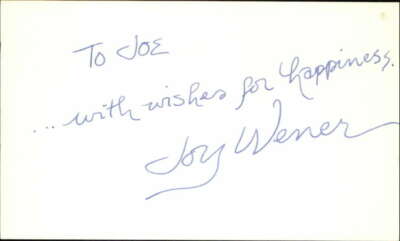 To JOE
...with wishes for happiness.
Joy Wener